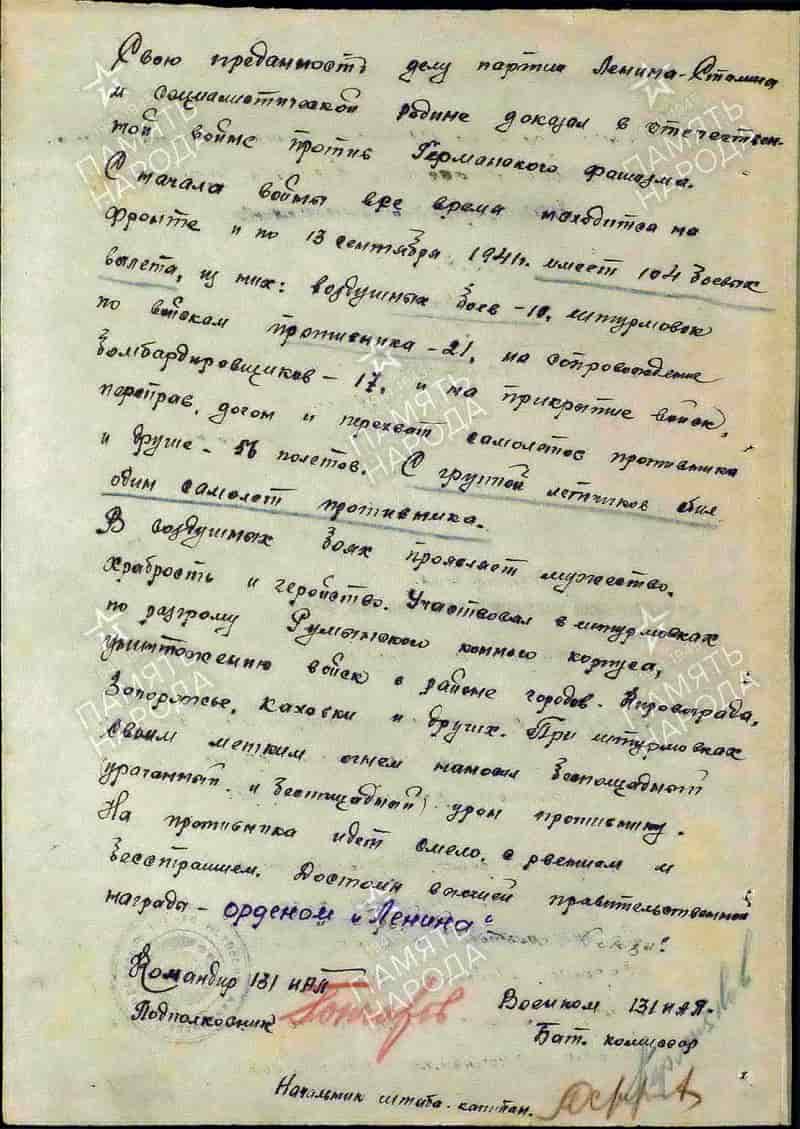 Свою преданность делу партии Ленина-Сталина
и социалистической родине доказал в отечествен-
ной войне против Германского фашизма.
С начала войны все время находится на
фронте и по 13 сентября 1941г. имеет 104 боевых
вылета, из них: воздушных боев - 10, штурмовок
по войскам противника - 21, на сопровождение
бомбардировщиков - 17, и на прикрытие войск,
переправ, догон и перехват самолетов противника
и другие - 56 полетов. С группой летчиков сбил
один самолет противника.
В воздушных боях проявляет мужество,
храбрость и геройство. Участвовал в штурмовках
по разгрому Румынского конного корпуса,
уничтожению войск в районе городов. Кировограда,
Запорожье, Каховки и других. При штурмовках
своим метким огнем наносил беспощадный
ураганный и беспощадный урон противнику.
На противника идет смело, с рвением и
бесстрашием. Достоин высшей правительственной
награды - орденом "Ленина"
Командир 131 ИАП
Подполковник
Военком 131 ИАП.
Бат. комиссар
Начальник штаба - капитан.
ПАМЯТЬ НАРОДА
ПАМЯТЬ НАРОДА
ПАМЯТЬ НАРОДА
ПАМЯТЬ НАРОДА
ПАМЯТЬ НАРОДА
ПАМЯТЬ НАРОДА